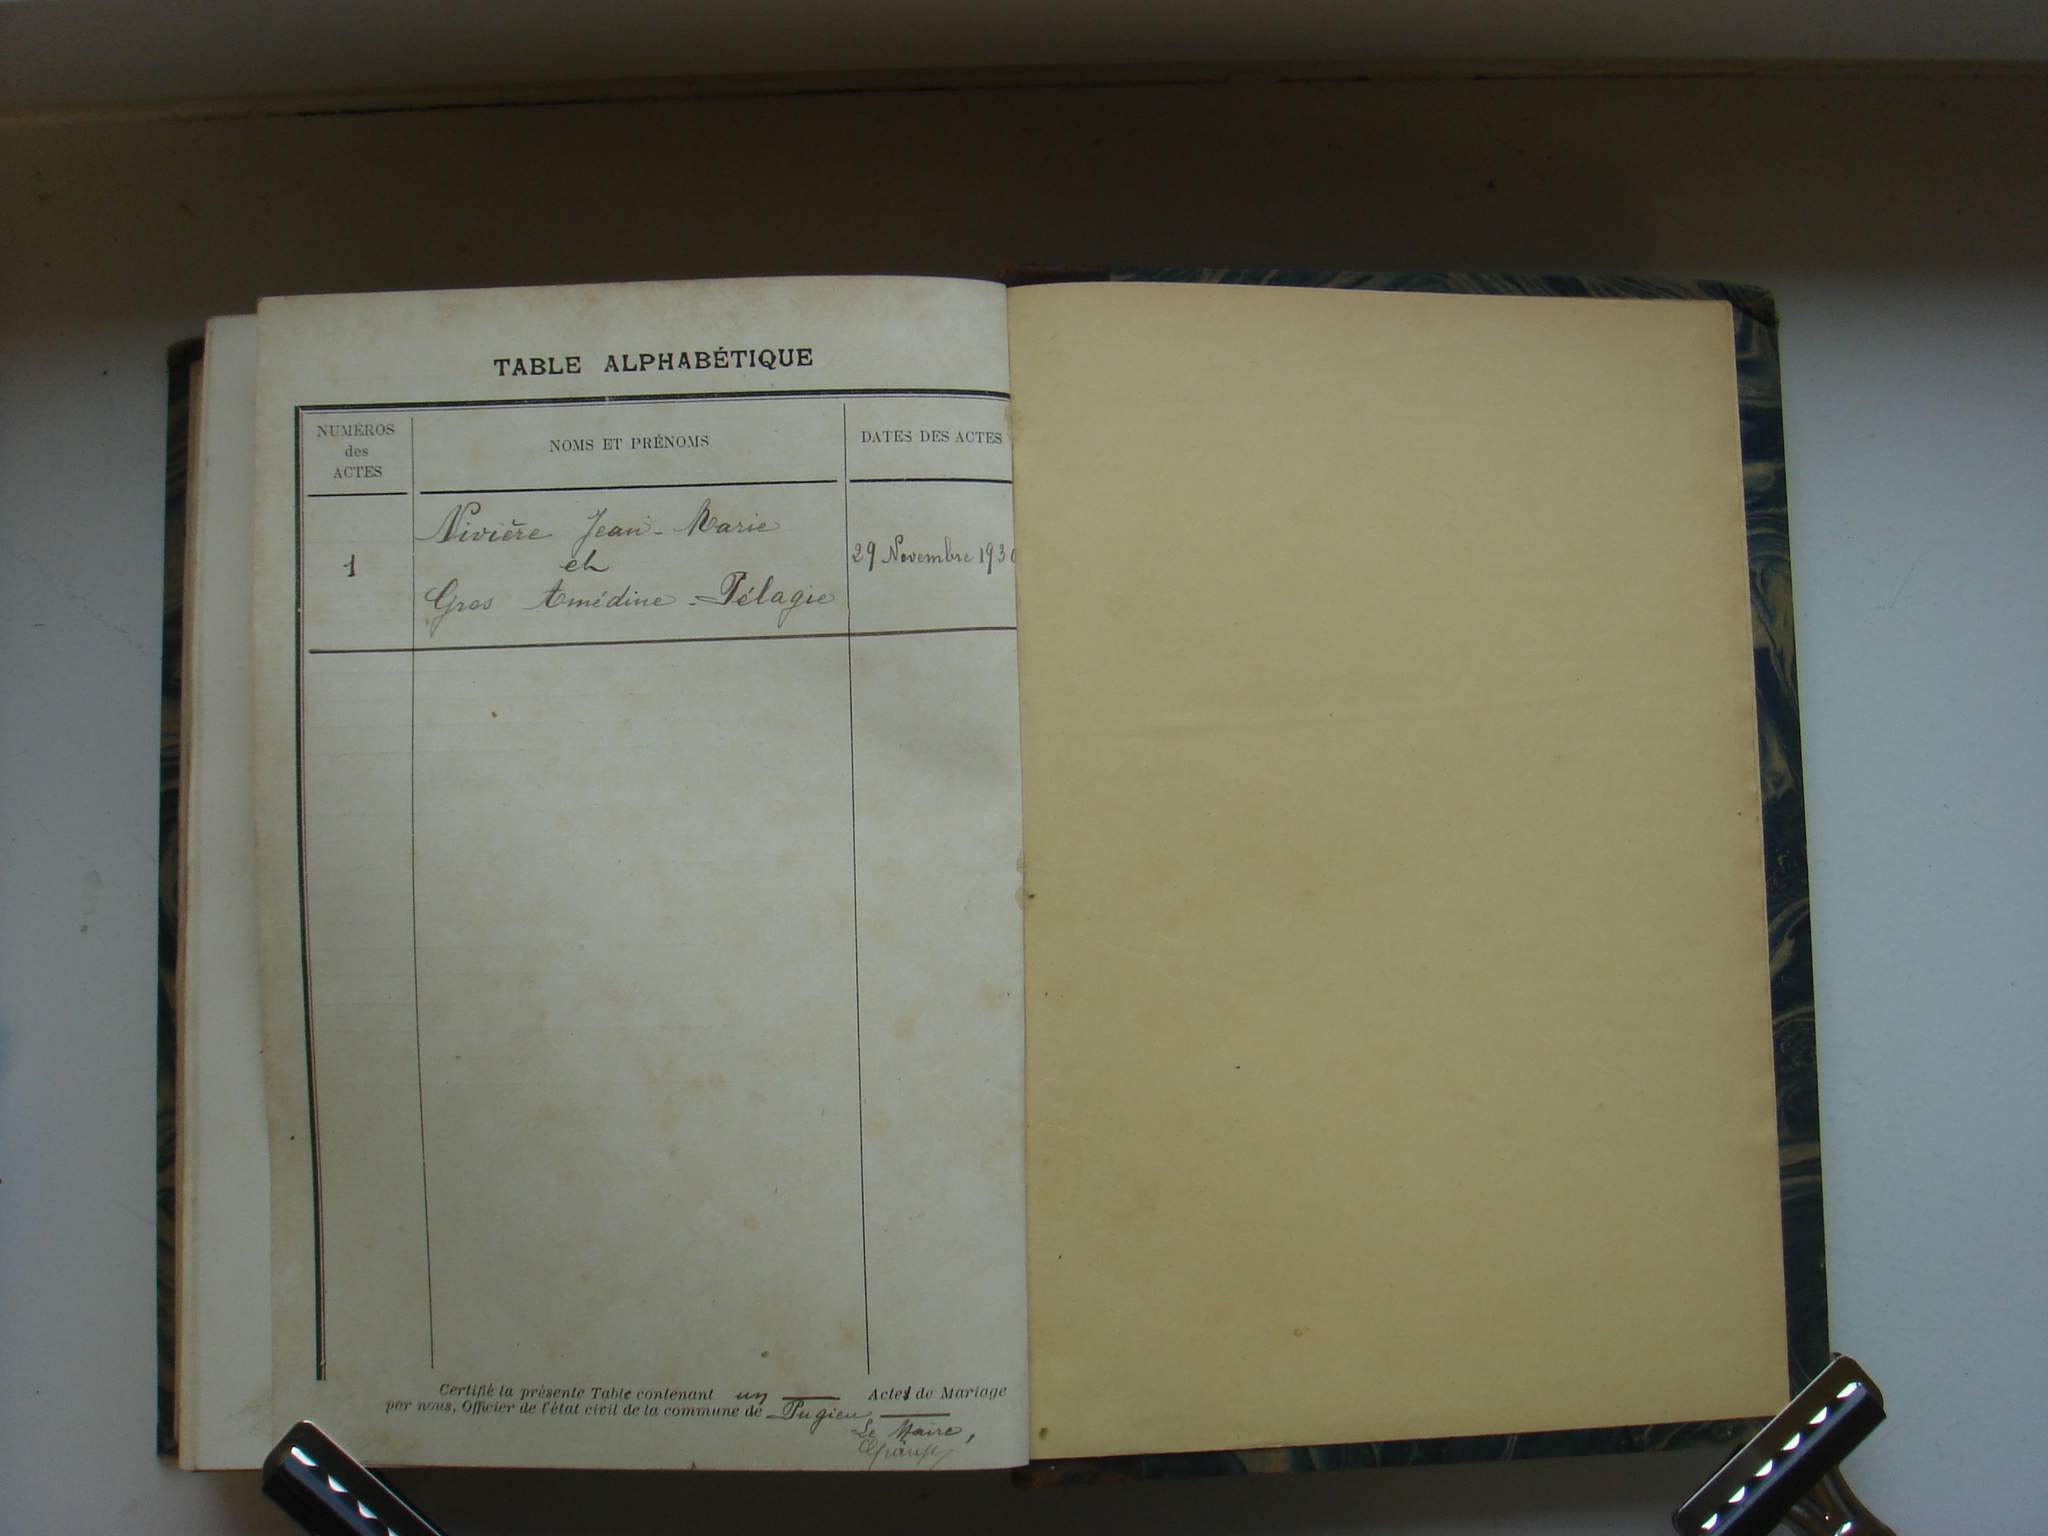 TABLE ALPHABÉTIQUE
NUMÉROS
des
ACTES
NOMS ET PRÉNOMS
DATES DES ACTES
1
Nivière Jean-Marie
et
Gros Amédine-Pélagie
29 Novembre 1930
Certifié la présente Table contenant un Actes de Mariage
par nous, Officier de l'état civil de la commune de Pugieu
Le Maire,